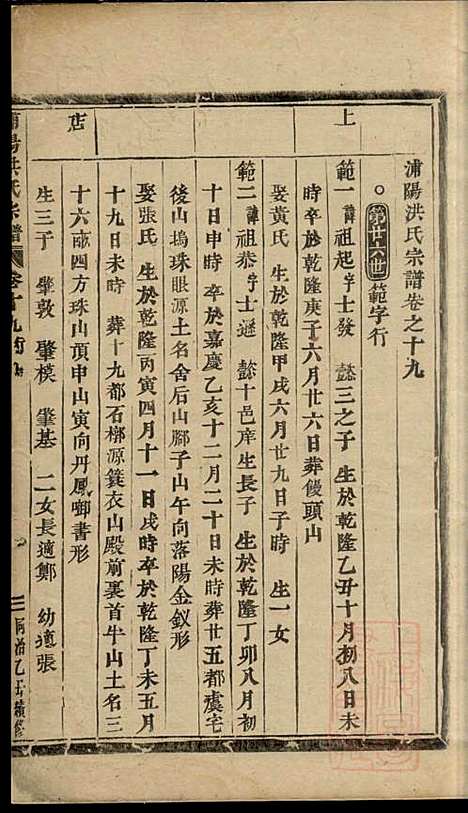 浦陽洪氏宗譜卷之十九
第廿六世 範字行
上
範一 諱祖起字士發 懿三之子 生於乾隆乙丑十月初八日未
時卒於乾隆庚子六月廿六日葬饅頭山
娶黃氏 生於乾隆甲戌六月廿九日子時 生一女
範二 諱祖恭字士遜 懿十邑庠生長子 生於乾隆丁卯八月初
十日申時 卒於嘉慶乙亥十二月二十日未時葬廿五都虞宅
後山塢珠眼源土名舍后山腳子山午向落陽金釵形
娶張氏 生於乾隆丙寅四月十一日戌時卒於乾隆丁未五月
十九日未時 葬十九都石槨源簑衣山殿前裏首牛山土名三
店
十六畝四方珠山頂申山寅向丹鳳啣書形
生三子 肇敦 肇模 肇基 二女長適鄭 幼適張
浦陽洪氏宗譜
卷十九
同治乙丑續修